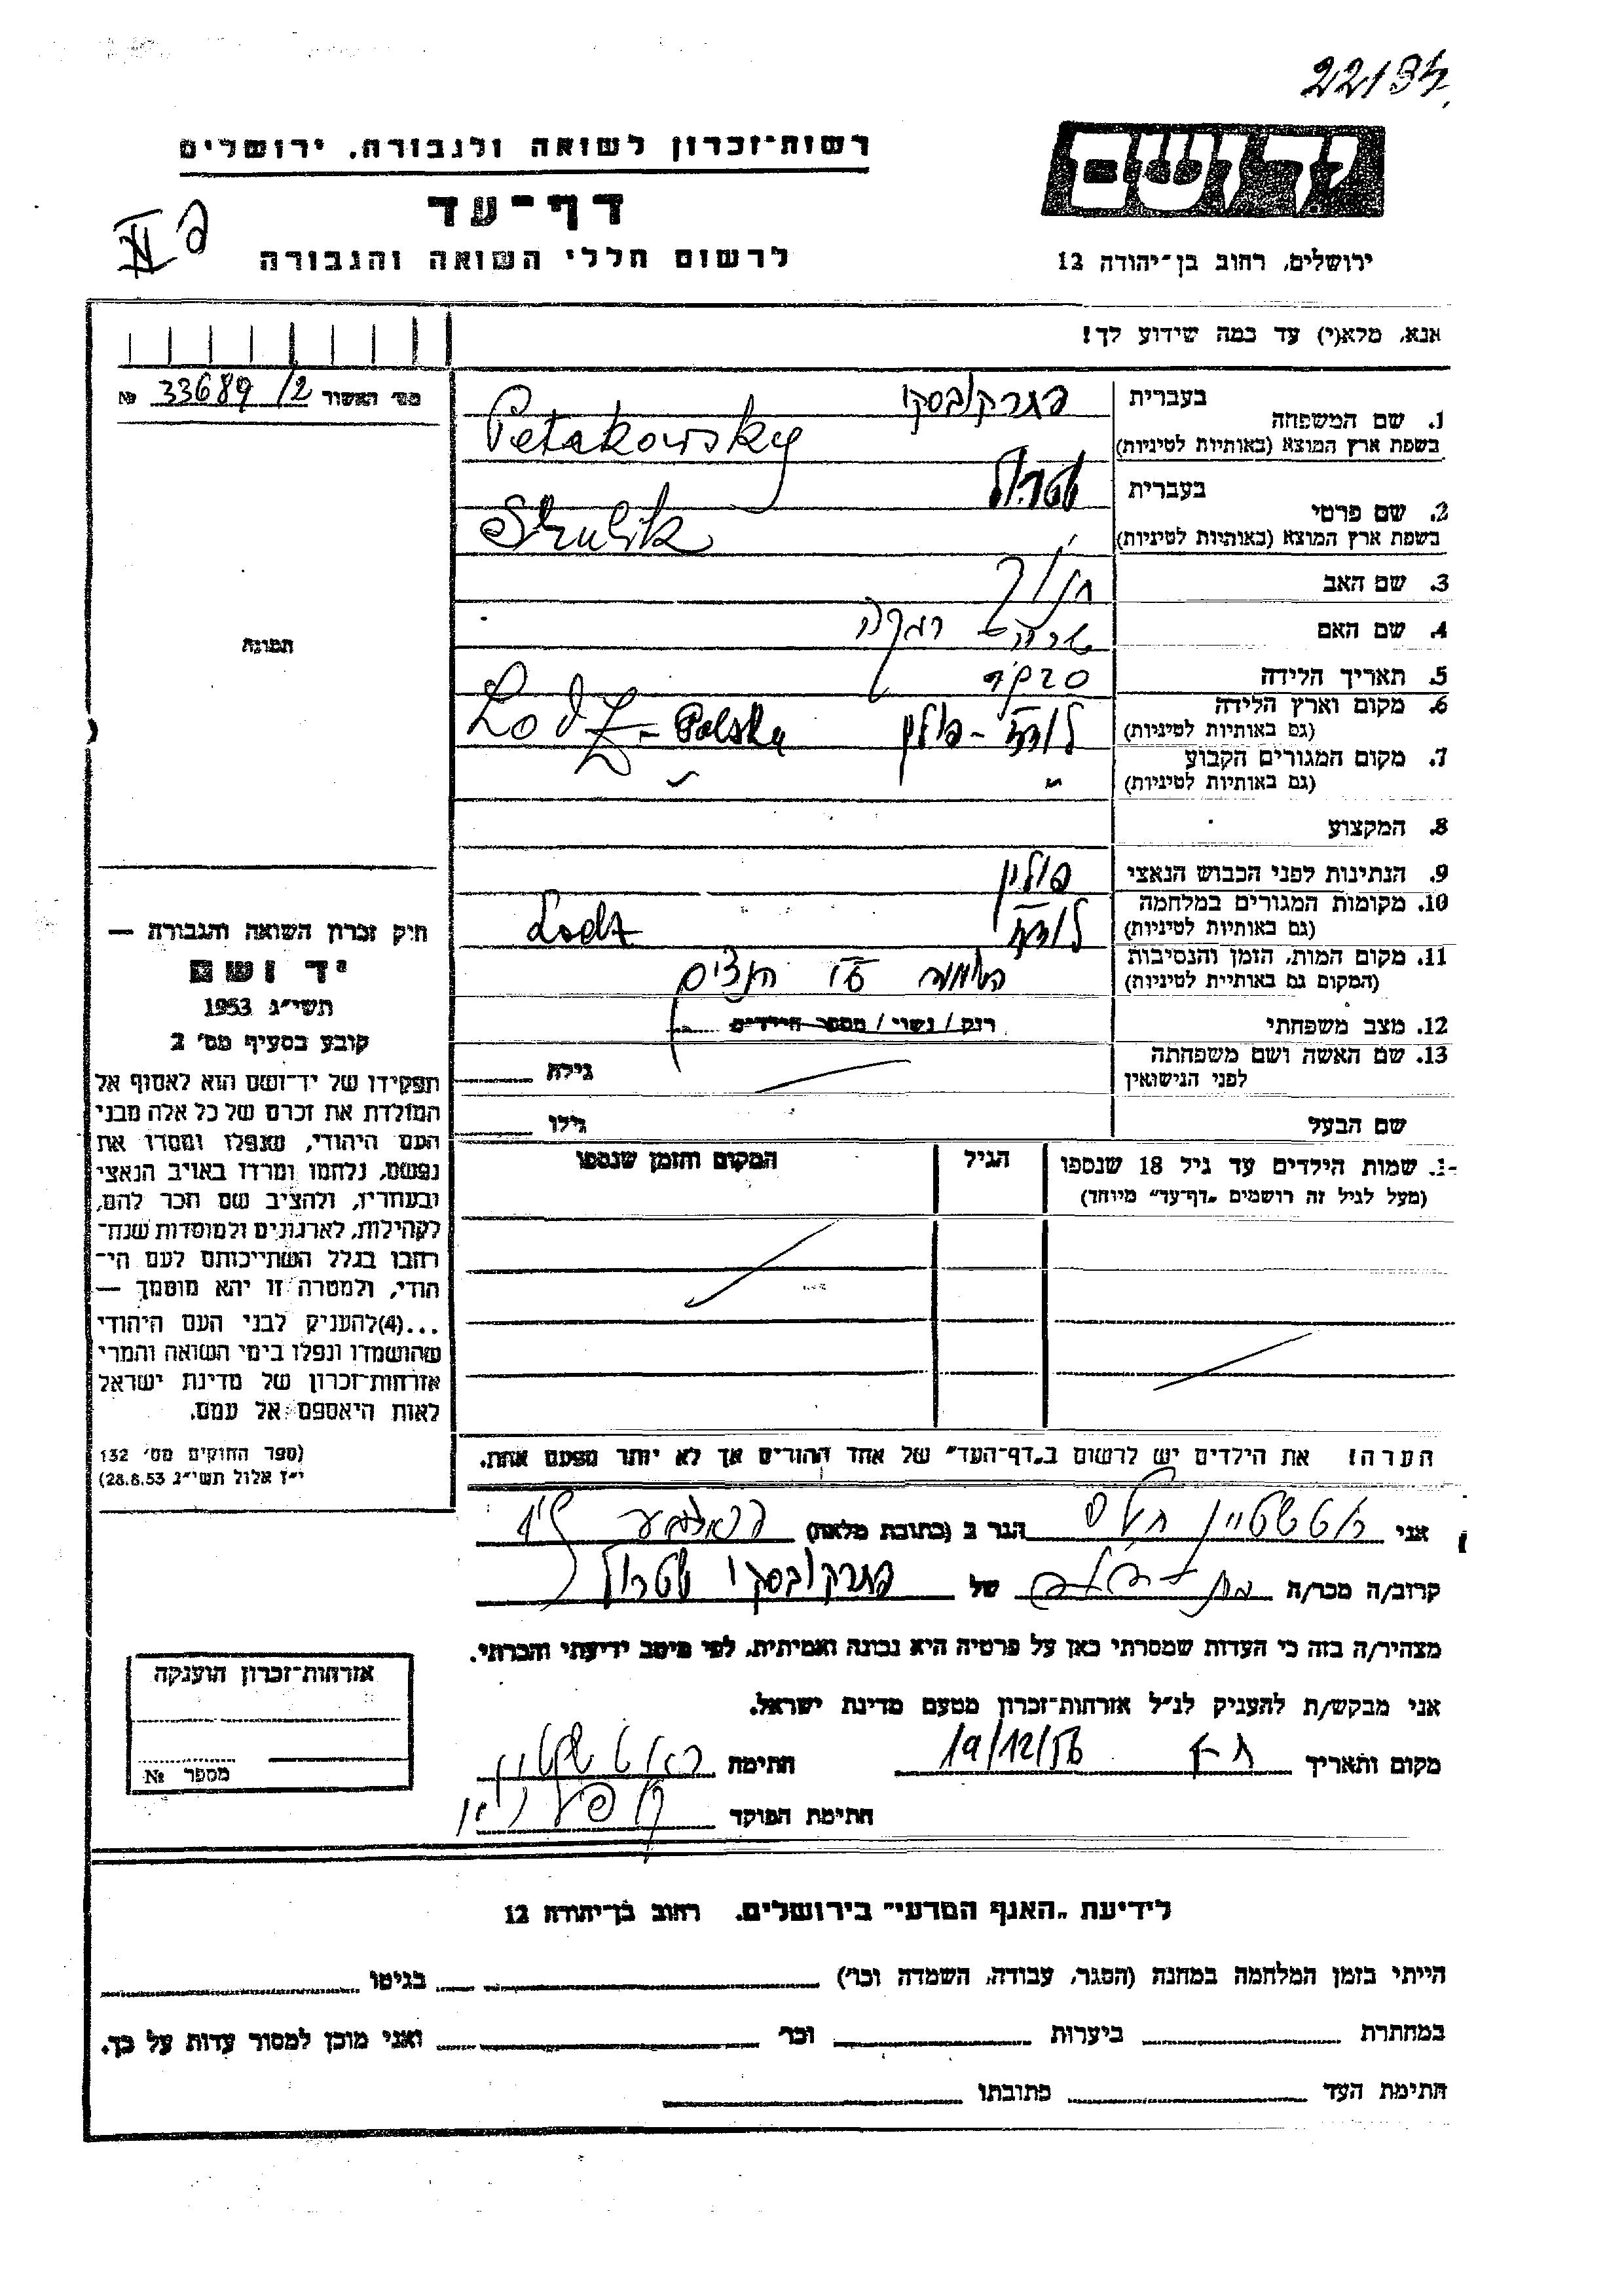 22134
רשות־זכרון לשואה ולגבורה, ירושלים
דף־עד
לרשום חללי השואה והגבורה
יד ושם
ירושלים, רחוב בן־יהודה 12
אנא, מלא(י) עד כמה שידוע לך!
מס׳ האשור 33689/2 №
1. שם המשפחה
בעברית
בשפת ארץ המוצא (באותיות לטיניות) Petakowsky
2. שם פרטי
בעברית
בשפת ארץ המוצא (באותיות לטיניות)
3. שם האב חנוך
4. שם האם
5. תאריך הלידה
6. מקום וארץ הלידה
(גם באותיות לטיניות) לודז - פולין Lodz - Polska
7. מקום המגורים הקבוע
(גם באותיות לטיניות) "
8. המקצוע
9. הנתינות לפני הכבוש הנאצי פולין
10. מקומות המגורים במלחמה
(גם באותיות לטיניות) לודז Lodz
11. מקום המות, הזמן והנסיבות
(המקום גם באותיית לטיניות) הושמד ע"י הנאצים
12. מצב משפחתי רוק/נשוי/מספר הילדים
13. שם האשה ושם משפחתה
לפני הנישואין גילה
שם הבעל גילו
תמונה
חוק זכרון השואה והגבורה —
יד ושם
תשי״ג 1953
קובע בסעיף מס׳ 2
תפקידו של יד־ושם הוא לאסוף אל
המולדת את זכרם של כל אלה מבני
העם היהודי, שנפלו ומסרו את
נפשם, נלחמו ומרדו באויב הנאצי
ובעוזריו, ולהציב שם וזכר להם,
לקהילות, לארגונים ולמוסדות שנח־
רבו בגלל השתייכותם לעם הי־
הודי, ולמטרה זו יהא מוסמך —
...(4) להעניק לבני העם היהודי
שהושמדו ונפלו בימי השואה והמרי
אזרחות־זכרון של מדינת ישראל
לאות היאספם אל עמם.
(ספר החוקים מס׳ 132
י״ז אלול תשי״ג 28.8.53)
שמות הילדים עד גיל 18 שנספו
(מעל לגיל זה רושמים „דף־עד״ מיוחד)
הגיל
המקום והזמן שנספו
הערה: את הילדים יש לרשום ב„דף־העד״ של אחד ההורים אך לא יותר מפעם אחת.
אני הגר ב (כתובת מלאה)
קרוב/ה מכר/ה של
מצהיר/ה בזה כי העדות שמסרתי כאן על פרטיה היא נכונה ואמיתית, לפי מיטב ידיעתי והכרתי.
אני מבקש/ת להעניק לנ״ל אזרחות־זכרון מטעם מדינת ישראל.
מקום ותאריך 19/12/56 חתימה
חתימת הפוקד
אזרחות־זכרון הוענקה
מספר №
לידיעת „האגף המדעי״ בירושלים, רחוב בן־יהודה 12
הייתי בזמן המלחמה במחנה (הסגר, עבודה, השמדה וכו׳) בגיטו
במחתרת ביערות וכו׳ ואני מוכן למסור עדות על כך.
חתימת העד כתובתו